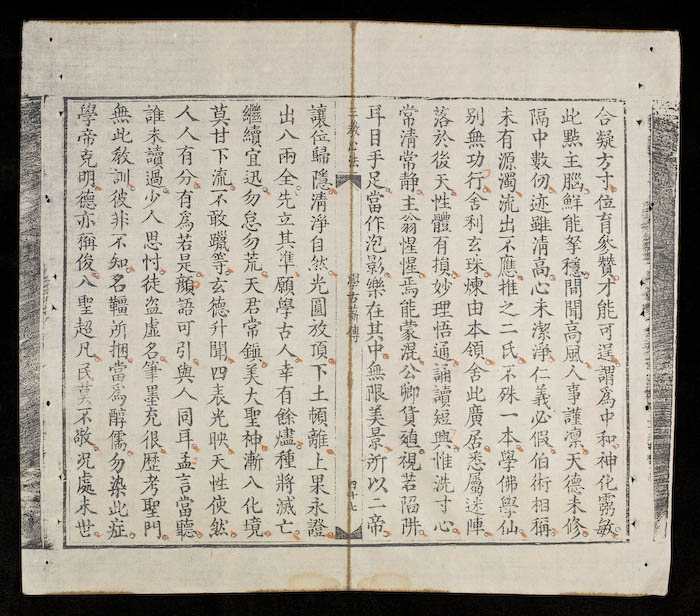 合凝方寸位育參贊才能可逞謂爲中和神化靈敏
此點主腦鮮能拏穩聞聞高風人事謹凛天德未修
隔中數仞迹雖清高心未潔淨仁義必假伯術相稱
未有源濁流出不應推之二氏不殊一本學佛學仙
別無功行舍利玄珠煉由本領舍此廣居悉屬迷陣
落於後天性體有損妙理悟通誦讀短興惟洗寸心
常清常靜主翁惺惺焉能蒙混公卿貨殖視若陷阱
耳目手足當作泡影樂在其中無限美景所以二帝
三教心法
學古薪傳
四十七
讓位歸隱清淨自然光圓放頂下土頓離上果永證
出八兩全先立其準願學古人幸有餘燼種將滅亡
繼續宜迅勿怠勿荒天君常鎮美大聖神漸入化境
莫甘下流不敢躐等玄德升聞四表光映天性使然
人人有分有爲若是顔語可引與人同耳孟言當聽
誰未讀過少人思忖徒盜虛名筆墨充很歷考聖門
無此教訓彼非不知名韁所捆當爲醇儒勿染此症
學帝克明德亦稱俊入聖超凡民莫不敬况處末世